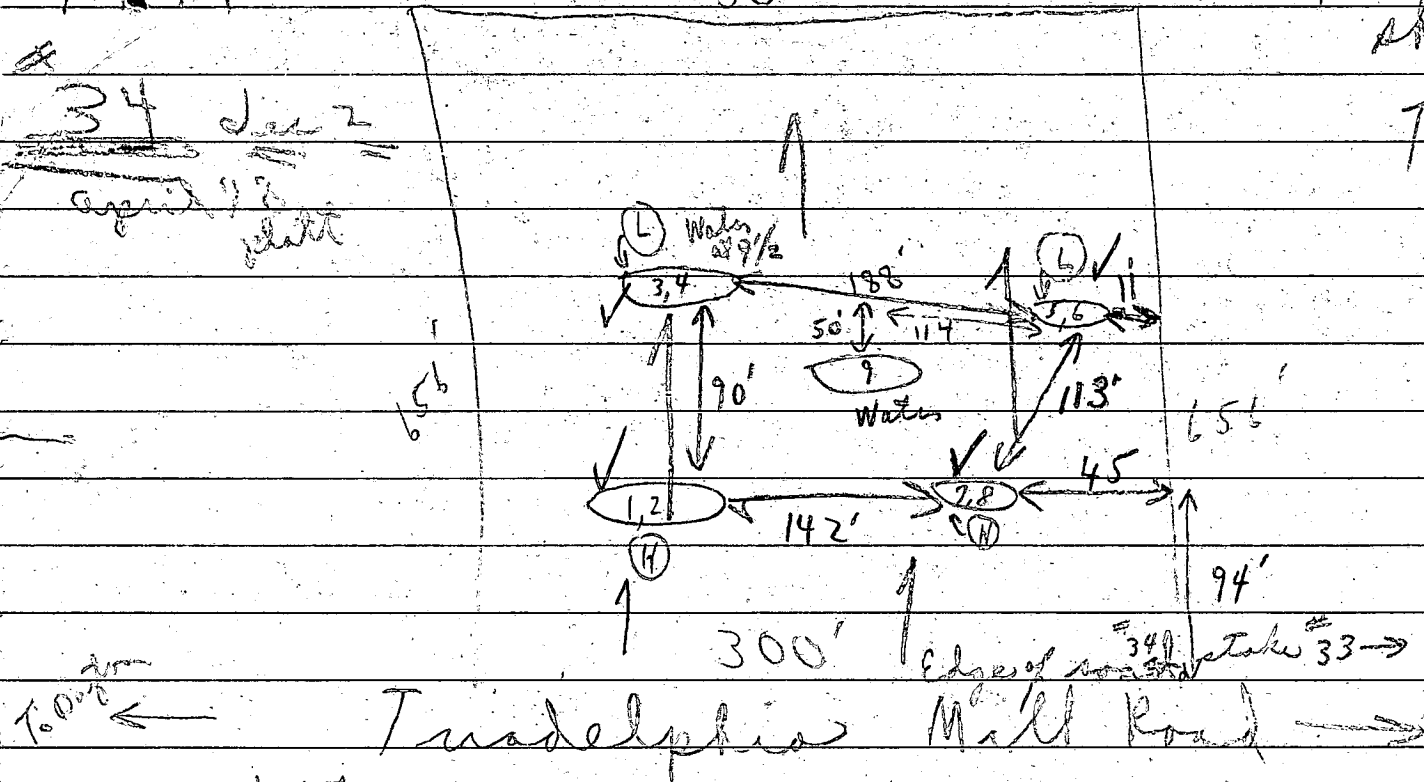 34 Dec 2
april
L Water
at 9 1/2
3,4
188'
L
11'
5,6
50'
114
9
Water
90'
113'
656'
656'
1,2
142'
7,8
45
H
H
94'
300'
Edge of road
#34 stake #33
To
Triadelphia Mill Road